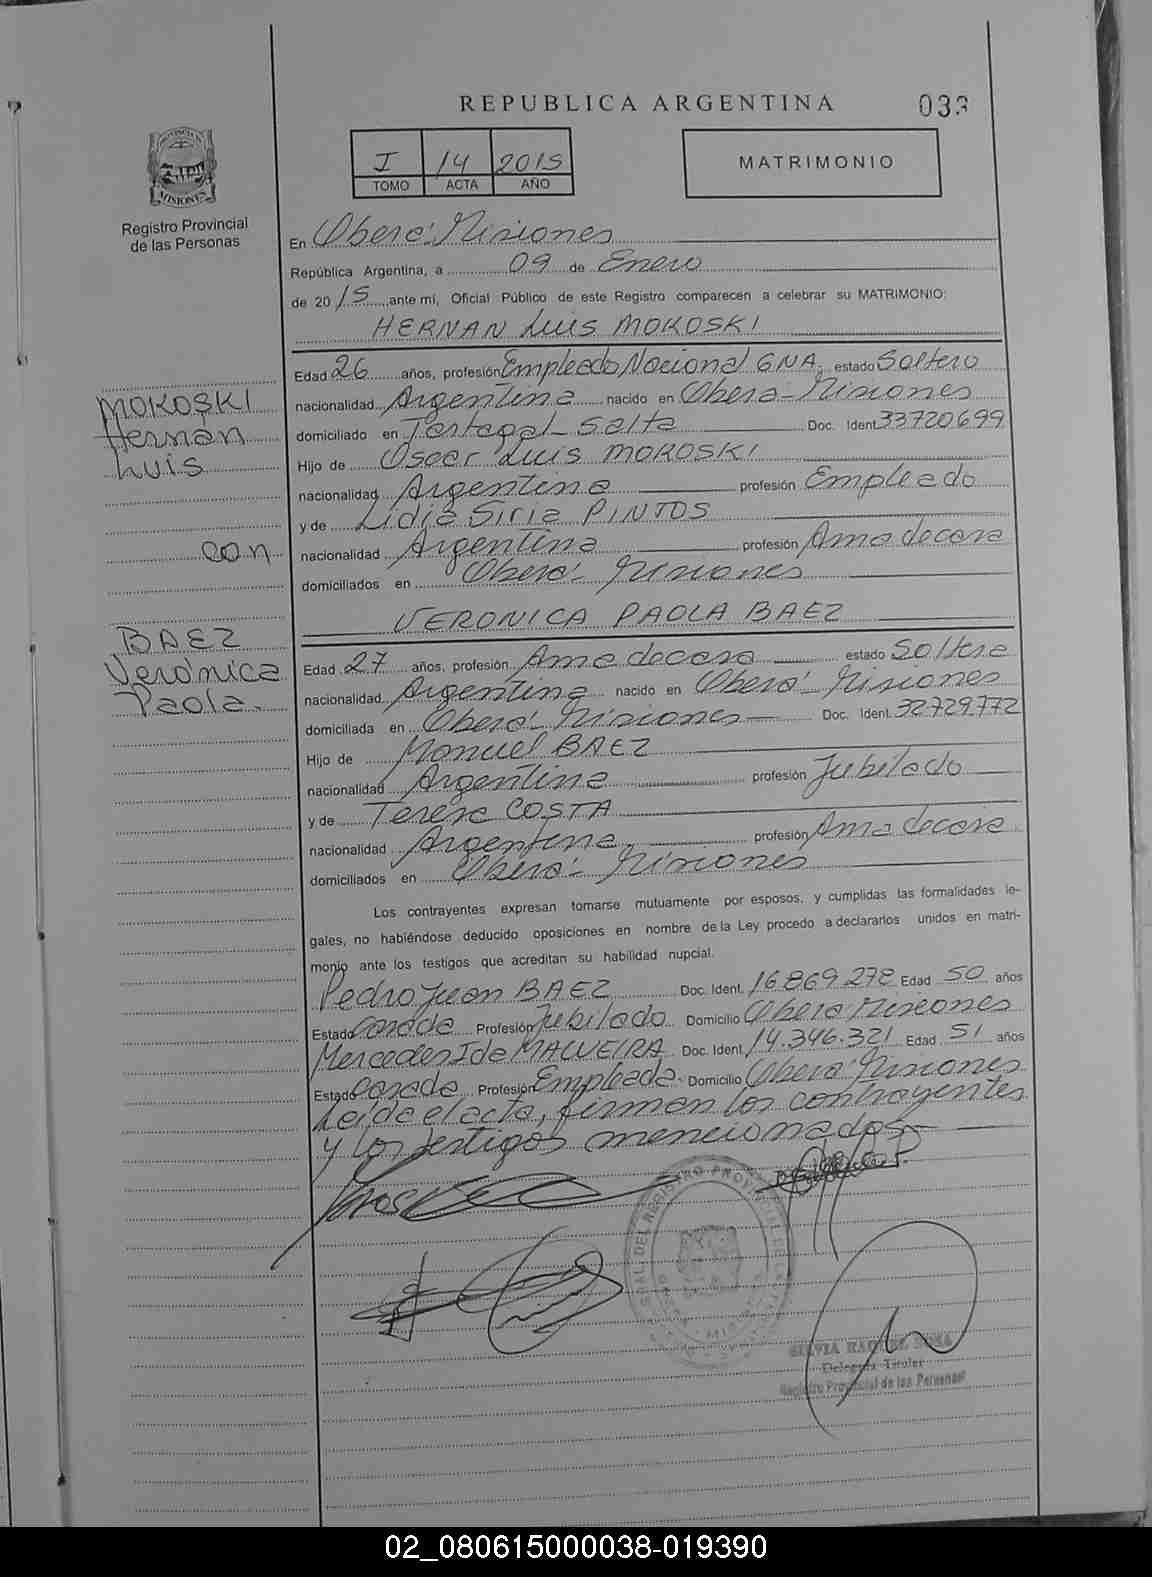 REPUBLICA ARGENTINA
033
I 14 2015
TOMO ACTA AÑO
MATRIMONIO
PROVINCIA MISIONES
Registro Provincial
de las Personas
En Oberá-Misiones
República Argentina, a 09 de Enero
de 2015 ante mí, Oficial Público de este Registro comparecen a celebrar su MATRIMONIO:
HERNAN Luis MOKOSKI
MOKOSKI
Hernán
Luis
con
BAEZ
Verónica
Paola.
Edad 26 años, profesión Empleado Nacional GNA. estado Soltero
nacionalidad Argentina nacido en Oberá-Misiones
domiciliado en Tartagal-Salta Doc. Ident 33720699
Hijo de Oscar Luis MOKOSKI
nacionalidad Argentina profesión Empleado
y de Lidia Siria PINTOS
nacionalidad Argentina profesión Ama de casa
domiciliados en Oberá-Misiones
VERONICA PAOLA BAEZ
Edad 27 años, profesión Ama de casa estado Soltera
nacionalidad Argentina nacido en Oberá-Misiones
domiciliada en Oberá-Misiones Doc. Ident. 32729.772
Hijo de Manuel BAEZ
nacionalidad Argentina profesión Jubilado
y de Teresa COSTA
nacionalidad Argentina profesión Ama de casa
domiciliados en Oberá-Misiones
Los contrayentes expresan tomarse mutuamente por esposos, y cumplidas las formalidades le-
gales, no habiéndose deducido oposiciones en nombre de la Ley procedo a declararlos unidos en matri-
monio ante los testigos que acreditan su habilidad nupcial.
Pedro Juan BAEZ Doc. Ident. 16869.278 Edad 50 años
Estado Casado Profesión Jubilado Domicilio Oberá Misiones
Mercedes Ida MALVEIRA Doc. Ident. 14.346.321 Edad 51 años
Estado Casada Profesión Empleada. Domicilio Oberá Misiones
Leída el acta, firman los contrayentes
y los testigos mencionados
SILVIA RAQUEL SOSA
Delegada Titular
Registro Provincial de las Personas
02_080615000038-019390